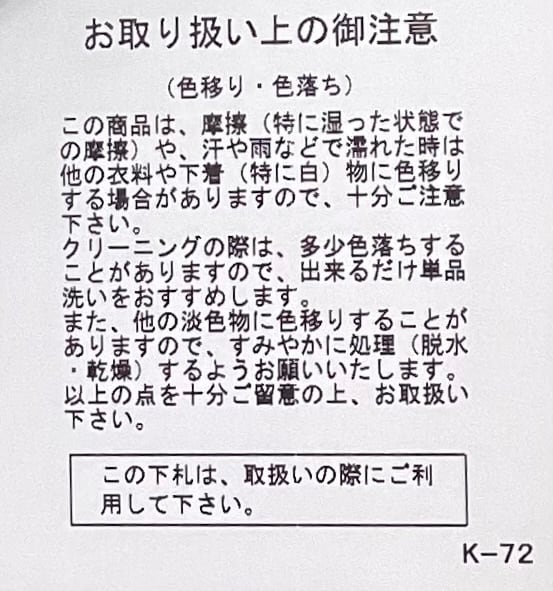 お取り扱い上の御注意
(色移り・色落ち)
この商品は、摩擦（特に湿った状態で
の摩擦）や、汗や雨などで濡れた時は
他の衣料や下着（特に白）物に色移り
する場合がありますので、十分ご注意
下さい。
クリーニングの際は、多少色落ちする
ことがありますので、出来るだけ単品
洗いをおすすめします。
また、他の淡色物に色移りすることが
ありますので、すみやかに処理（脱水
・乾燥）するようお願いいたします。
以上の点を十分ご留意の上、お取扱い
下さい。
この下札は、取扱いの際にご利
用して下さい。
K-72